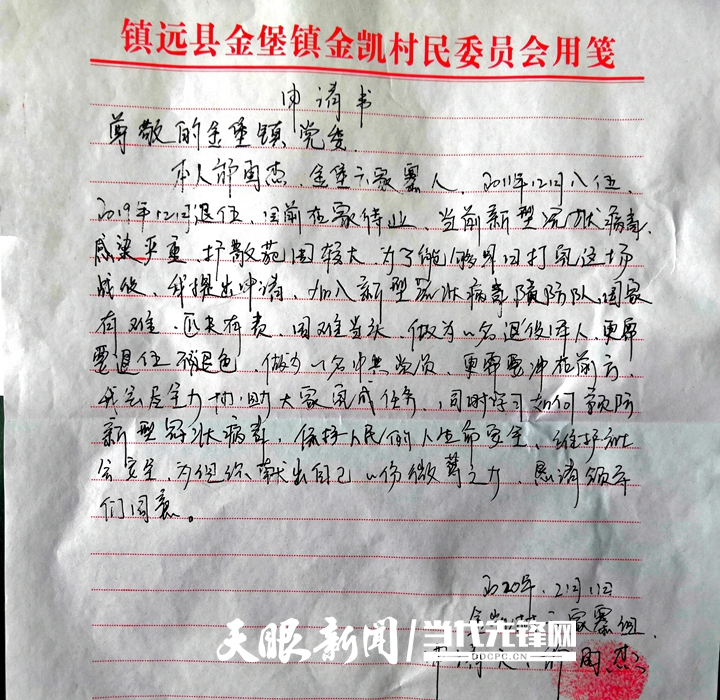 镇远县金堡镇金凯村民委员会用笺
申请书
尊敬的金堡镇党委
本人邰周杰、金堡六家寨人、2011年12月入伍、
2019年12月退伍、目前在家待业、当前新型冠状病毒
感染严重、扩散范围较大、为了能够早日打完这场
战役、我提出申请、加入新型冠状病毒预防队、国家
有难、匹夫有责、困难当头、做为一名退役军人、更要
退伍不退色、做为一名中共党员、更要冲在前方、
我会尽全力协助大家完成任务、同时学习如何预防
新型冠状病毒、保持人民的人生命安全、维护社
会安全、为组织献出自己一份微薄之力、恳请领导
们同意。
2020年2月1日
六家寨组
周杰
天眼新闻
当代先锋网
DDCPC.CN